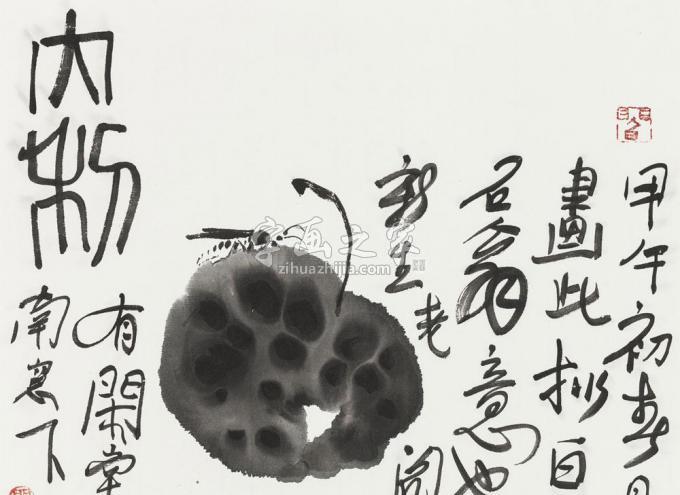 甲午初春
畫此拟白
石翁意也
新生老
有閑堂
南窗下
字画之家
zihuazhijia.com